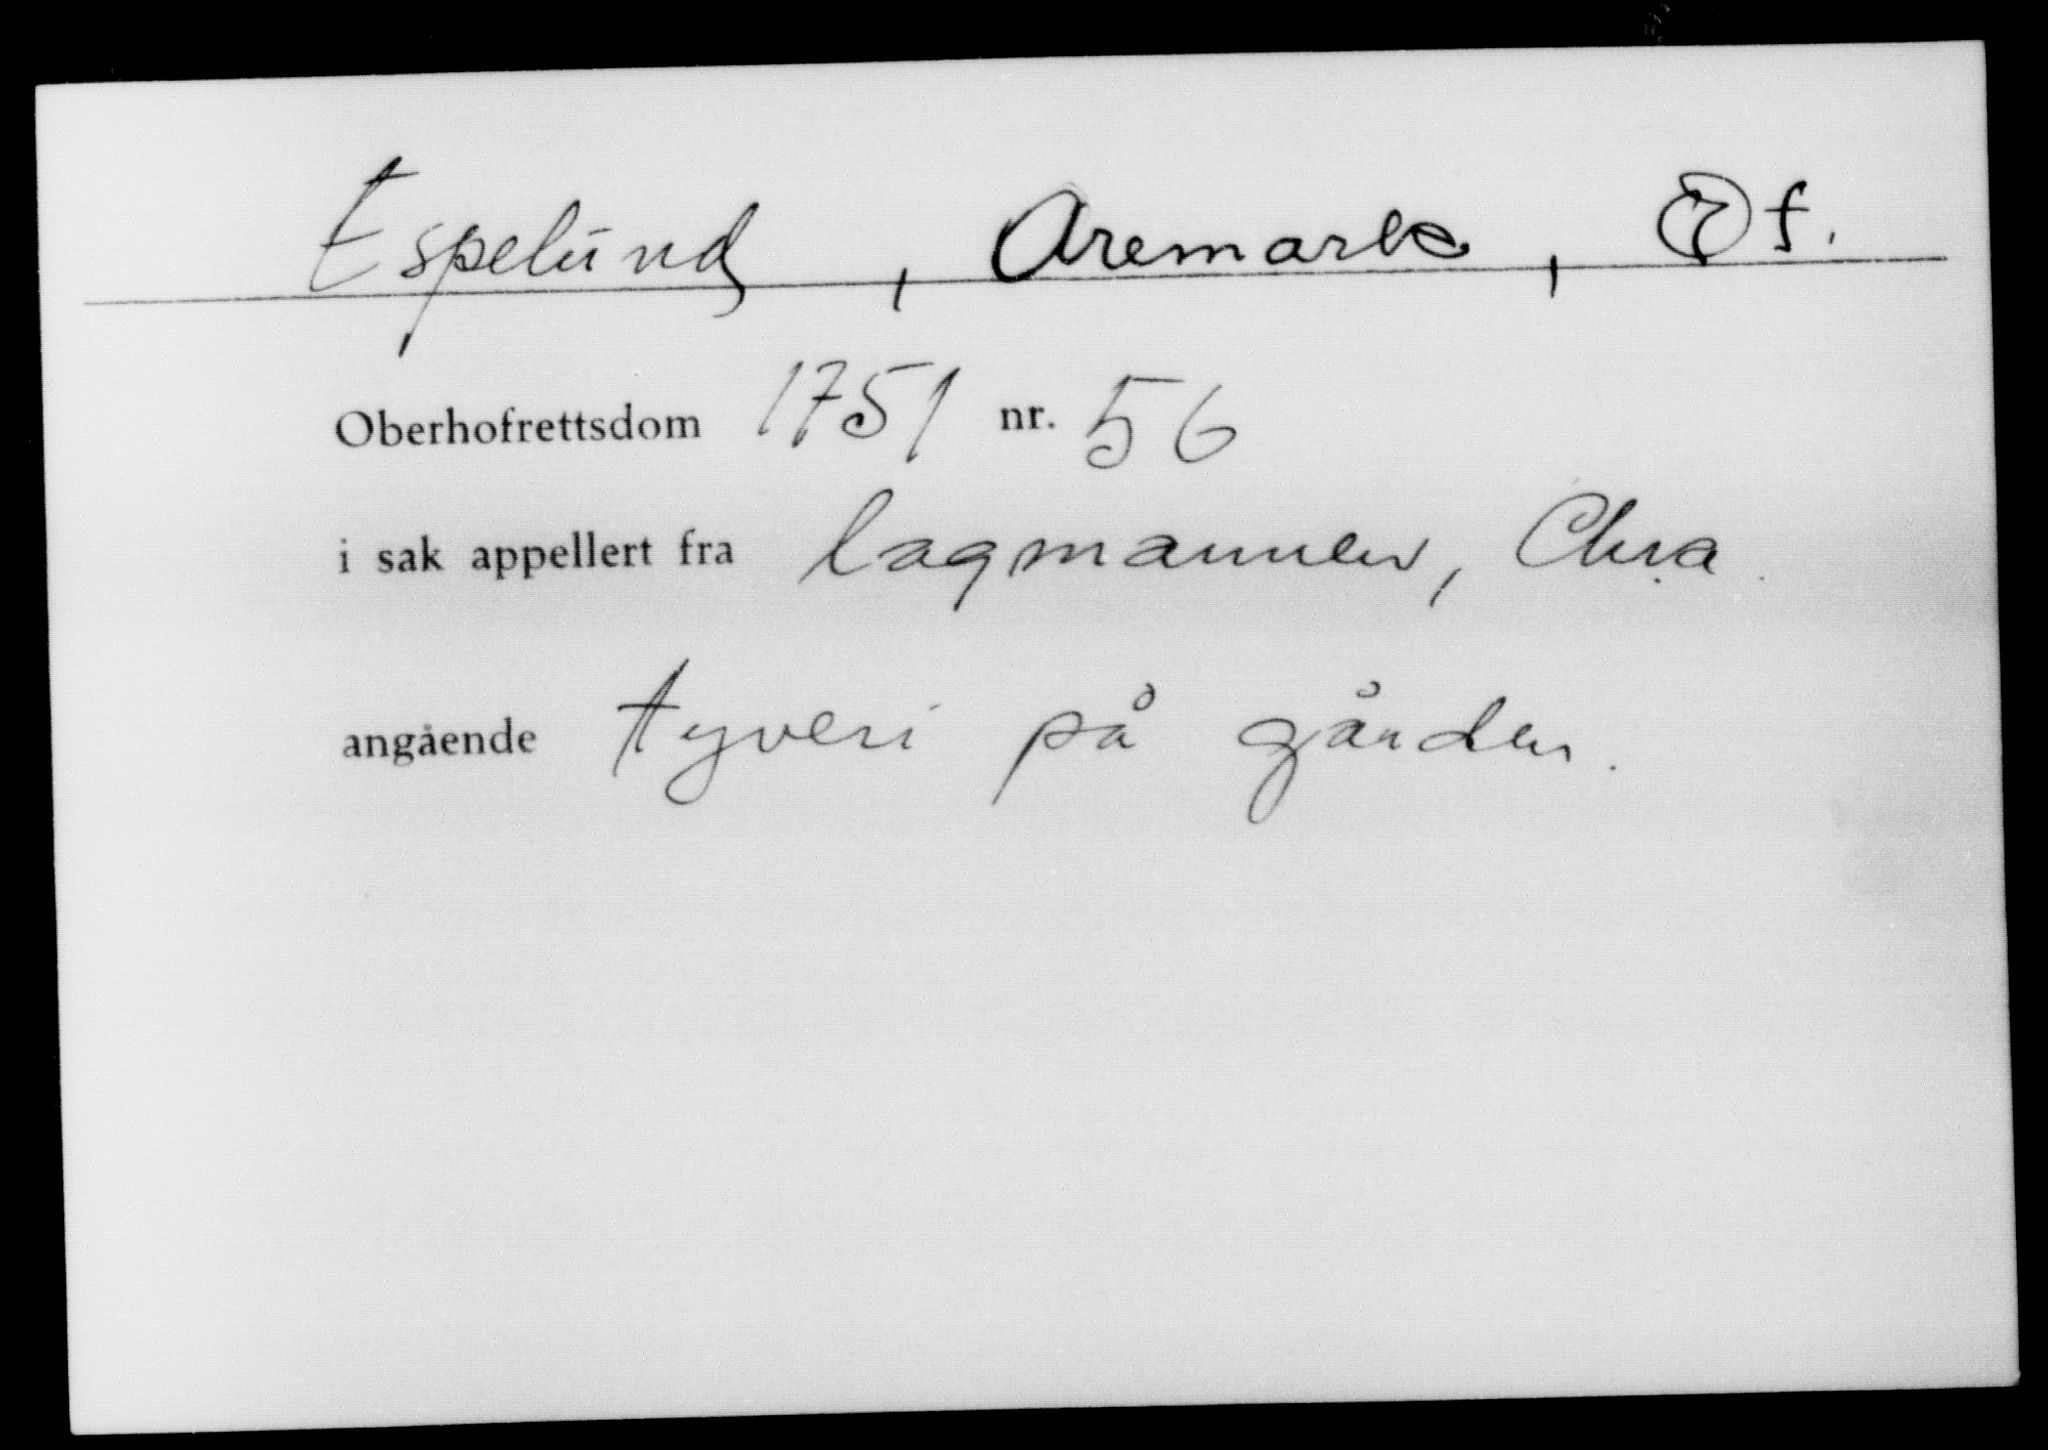 Espelund, Aremark, Øf.
Oberhofrettsdom 1751 nr. 56
i sak appellert fra lagmannen, Chra.
angående tyveri på gården.